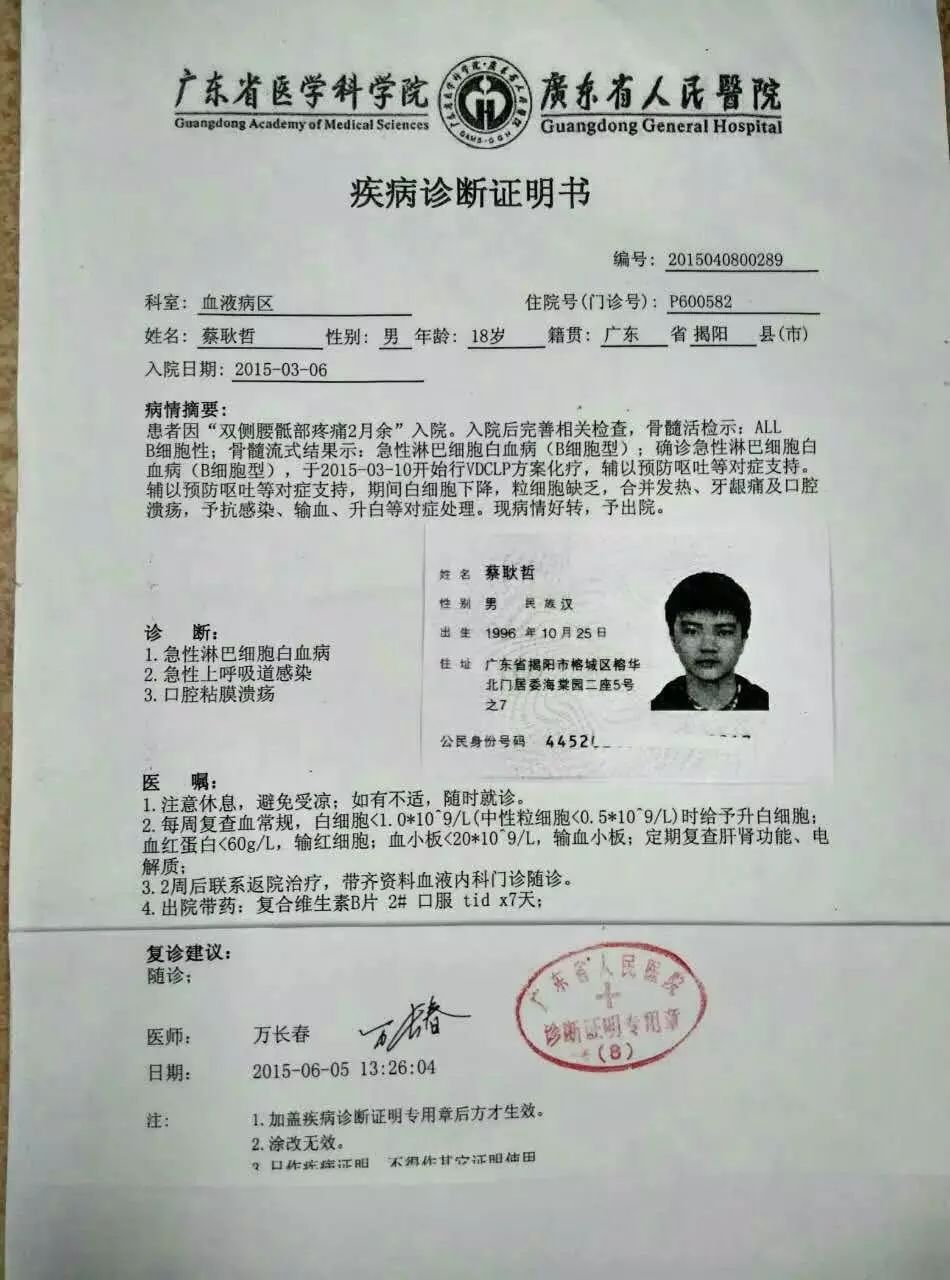 广东省医学科学院 廣东省人民醫院
Guangdong Academy of Medical Sciences Guangdong General Hospital
GAMS-GGH
疾病诊断证明书
编号: 2015040800289
科室: 血液病区 住院号(门诊号): P600582
姓名: 蔡耿哲 性别: 男 年龄: 18岁 籍贯: 广东 省 揭阳 县(市)
入院日期: 2015-03-06
病情摘要:
患者因“双侧腰骶部疼痛2月余”入院。入院后完善相关检查, 骨髓活检示: ALL
B细胞性; 骨髓流式结果示: 急性淋巴细胞白血病 (B细胞型); 确诊急性淋巴细胞白
血病 (B细胞型), 于2015-03-10开始行VDCLP方案化疗, 辅以预防呕吐等对症支持。
辅以预防呕吐等对症支持, 期间白细胞下降, 粒细胞缺乏, 合并发热、牙龈痛及口腔
溃疡, 予抗感染、输血、升白等对症处理。现病情好转, 予出院。
姓名 蔡耿哲
性别 男 民族 汉
出生 1996 年 10 月 25 日
住址 广东省揭阳市榕城区榕华
北门居委海棠园二座5号
之7
公民身份号码 4452
诊 断:
1. 急性淋巴细胞白血病
2. 急性上呼吸道感染
3. 口腔粘膜溃疡
医 嘱:
1. 注意休息, 避免受凉; 如有不适, 随时就诊。
2. 每周复查血常规, 白细胞<1.0*10^9/L(中性粒细胞<0.5*10^9/L)时给予升白细胞;
血红蛋白<60g/L, 输红细胞; 血小板<20*10^9/L, 输血小板; 定期复查肝肾功能、电
解质;
3. 2周后联系返院治疗, 带齐资料血液内科门诊随诊。
4. 出院带药: 复合维生素B片 2# 口服 tid x7天;
复诊建议:
随诊;
医师: 万长春 万长春
日期: 2015-06-05 13:26:04
广东省人民医院
诊断证明专用章
(8)
注: 1. 加盖疾病诊断证明专用章后方才生效。
2. 涂改无效。
3. 只作疾病证明, 不得作其它证明使用